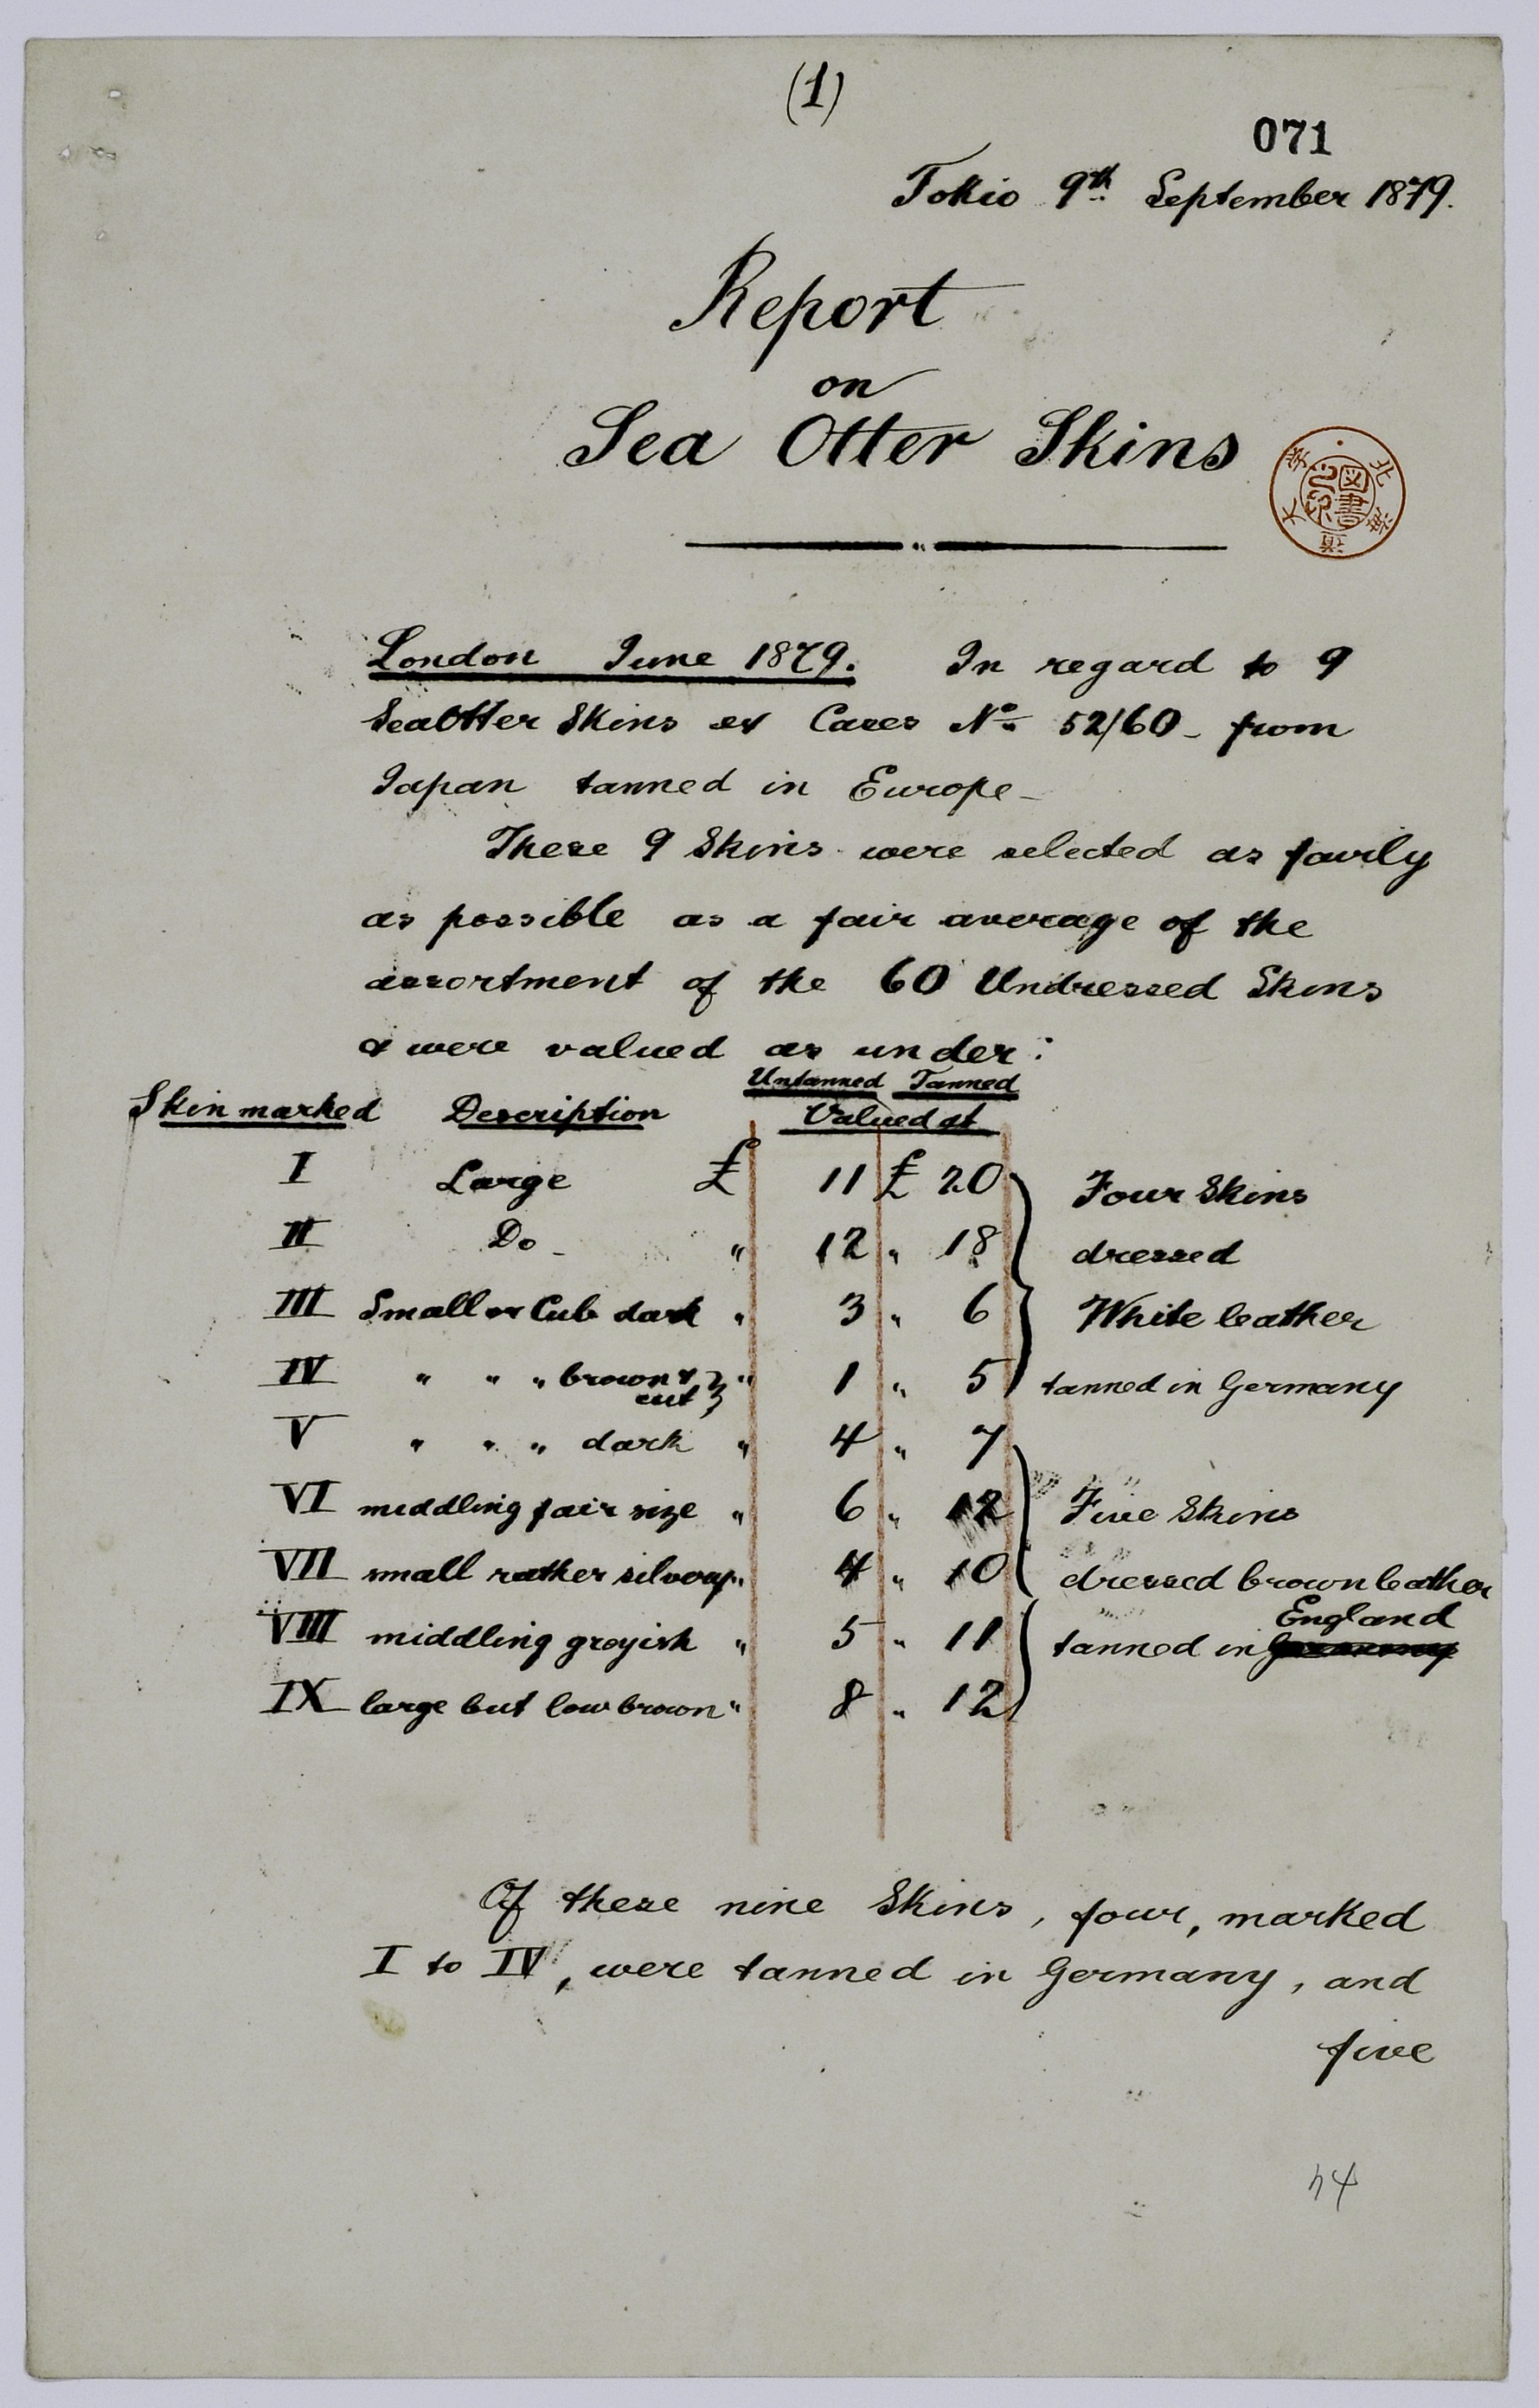 (1)
071
Tokio 9th September 1879.
Report
on
Sea Otter Skins
北海道大学
図書之印
London June 1879. In regard to 9
Sea Otter Skins ex Cases No. 52/60 - from
Japan tanned in Europe -
These 9 Skins were selected as fairly
as possible as a fair average of the
assortment of the 60 Undressed Skins
& were valued as under:
Untanned Tanned
Skin marked Description Valued at
I Large £ 11 £ 20 Four Skins
II Do - " 12 " 18 dressed
III Small or Cub dark " 3 " 6 White leather
IV " " " brown & cut " 1 " 5 tanned in Germany
V " " " dark " 4 " 7
VI middling fair size " 6 " 12 Five Skins
VII small rather silvery " 4 " 10 dressed brown leather
England
VIII middling greyish " 5 " 11 tanned in Germany
IX large but low brown " 8 " 12
Of these nine Skins, four, marked
I to IV, were tanned in Germany, and
five